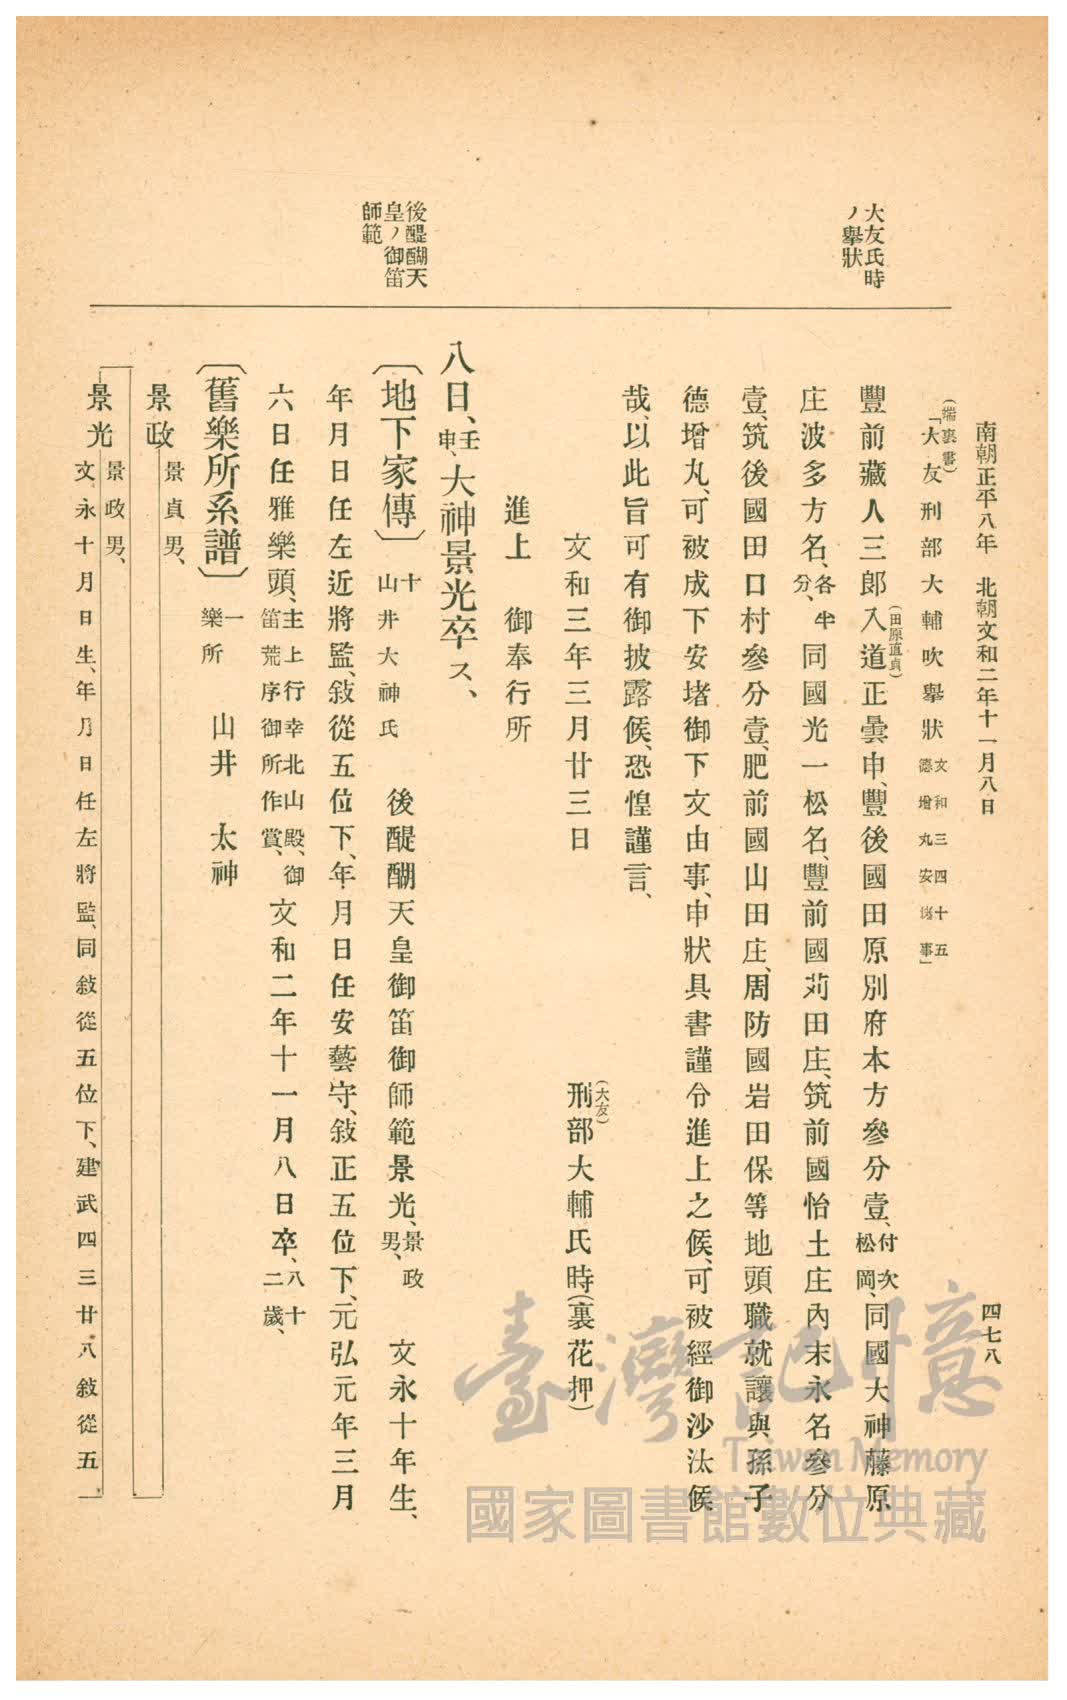 南朝正平八年　北朝文和二年十一月八日
四七八
大友氏時
ノ擧狀
後醍醐天
皇ノ御笛
師範
(端裏書)
「大友刑部大輔吹擧狀 文和三四十五
德增丸安堵事」
豐前藏人三郎入道(田原直貞)正曇申、豐後國田原別府本方參分壹、付次松岡、同國大神藤原
庄波多方名、各半分、同國光一松名、豐前國苅田庄、筑前國怡土庄內末永名參分
壹、筑後國田口村參分壹、肥前國山田庄、周防國岩田保等地頭職就讓與孫子
德增丸、可被成下安堵御下文由事、申狀具書謹令進上之候、可被經御沙汰候
哉、以此旨可有御披露候、恐惶謹言、
文和三年三月廿三日
(大友)
刑部大輔氏時(裏花押)
進上　御奉行所
八日、壬申、大神景光卒ス、
〔地下家傳〕 十 山井大神氏　後醍醐天皇御笛御師範景光、景政男、　文永十年生、
年月日任左近將監、敍從五位下、年月日任安藝守、敍正五位下、元弘元年三月
六日任雅樂頭、主上行幸北山殿、御笛荒序御所作賞、文和二年十一月八日卒、八十二歲、
〔舊樂所系譜〕 一 樂所　山井　太神
景政 景貞男、
景光 景政男、
文永十月日生、年月日任左將監、同敍從五位下、建武四三廿八敍從五
臺灣記憶
Taiwan Memory
國家圖書館數位典藏